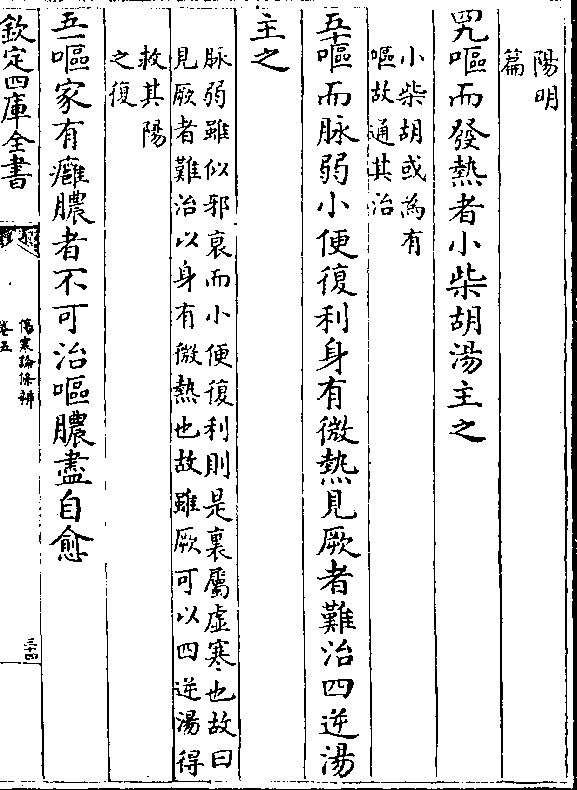 陽明
篇
四九嘔而發熱者小柴胡湯主之
小柴胡或為有
嘔故通其治
五十嘔而脉弱小便復利身有微熱見厥者難治四逆湯
主之
脉弱雖似邪衰而小便復利則是裏屬虛寒也故曰
見厥者難治以身有微熱也故雖厥可以四逆湯得
救其陽
之復
五一嘔家有癰膿者不可治嘔膿盡自愈
欽定四庫全書
傷寒論條辨
卷五
三十四